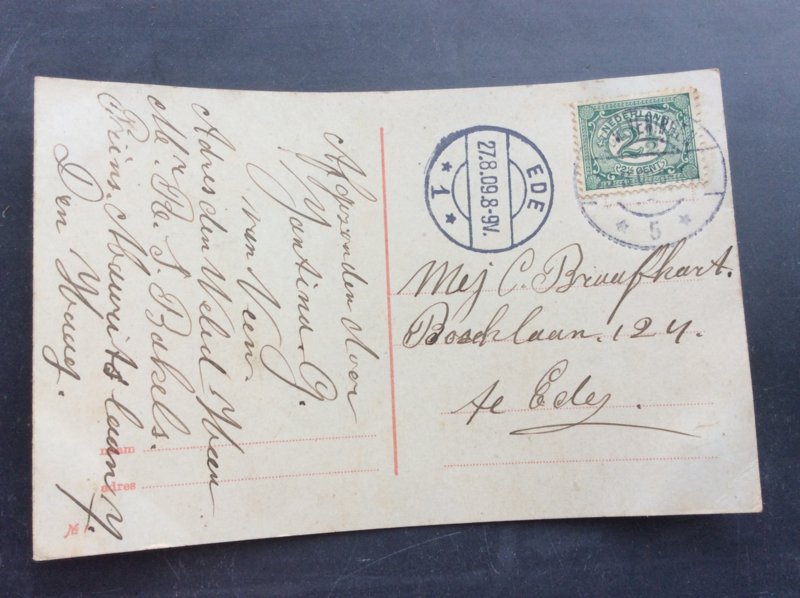 Afgezonden door
Jantina G.
van Veen.
Adres den Weled Heer
Mr R. S. Bakels.
Prins Mauritslaan 4
Den Haag.
naam
adres
№
EDE
27.8.09.8-9V.
1
NEDERLAND
2½
2½ CENT
5
Mej C. Braafhart.
Boschlaan. 124.
te Ede.